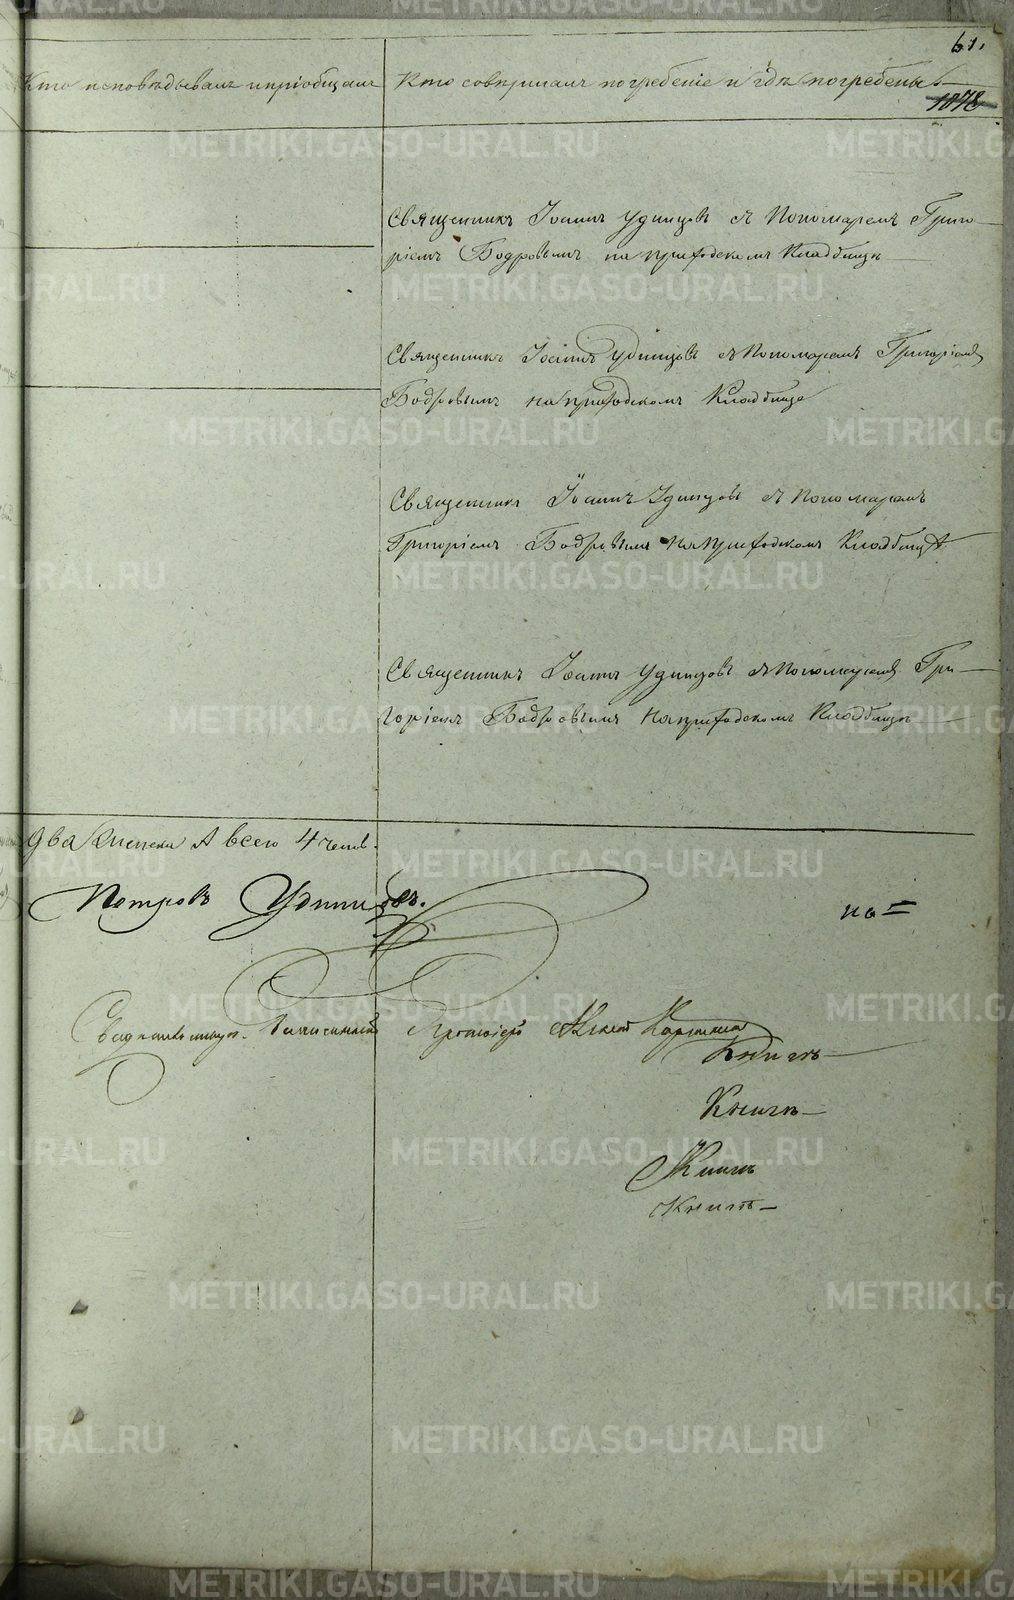 61.
Кто исповѣдывалъ и пріобщалъ
Кто совершалъ погребеніе и гдѣ погребены
1078
Священникъ Іоаннъ Удинцовъ съ Пономаремъ Григо-
ріемъ Бодровымъ на приходскомъ Кладбищѣ
Священникъ Іоаннъ Удинцовъ съ Пономаремъ Григоріемъ
Бодровымъ на приходскомъ Кладбище
Священникъ Іоаннъ Удинцовъ съ Пономаремъ
Григоріемъ Бодровымъ на приходскомъ Кладбищѣ
Священникъ Іоаннъ Удинцовъ съ Пономаремъ Гри-
горіемъ Бодровымъ на приходскомъ Кладбищѣ
Два женска А всего 4 челов.
Петровъ Удинцовъ.
по
Протоіерей
Книгѣ
Книгѣ
Книгѣ
Книгѣ
METRIKI.GASO-URAL.RU